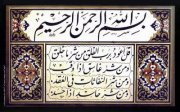 بسم الله الرحمن الرحيم
قل أعوذ برب الفلق من شر ما خلق
ومن شر غاسق إذا وقب
ومن شر النفاثات في العقد
ومن شر حاسد إذا حسد